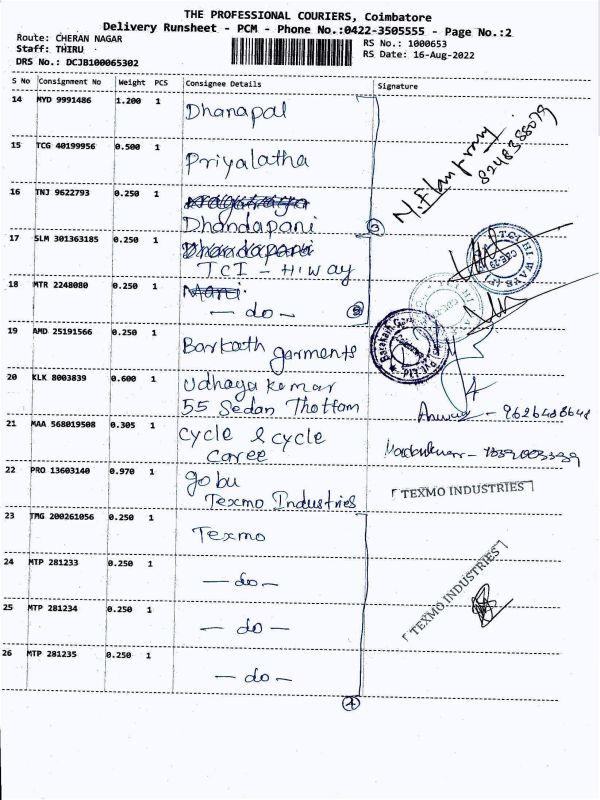 THE PROFESSIONAL COURIERS, Coimbatore
Delivery Runsheet - PCM - Phone No.:0422-3505555 - Page No.:2
Route: CHERAN NAGAR
Staff: THIRU
DRS No.: DCJB100065302
RS No.: 1000653
RS Date: 16-Aug-2022
S No Consignment No Weight PCS Consignee Details Signature
14 MYD 9991486 1.200 1 Dhanapal
8248388079
15 TCG 40199956 0.500 1 Priyalatha
16 TNJ 9622793 0.250 1
Dhandapani
3
17 SLM 301363185 0.250 1 Dhandapani
TCI - Hiway
18 MTR 2248080 0.250 1 Mani
- do -
2
19 AMD 25191566 0.250 1 Barkath garments
20 KLK 8003839 0.600 1 Udhaya kumar
55 Sedan Thottam
21 MAA 568019508 0.305 1 cycle & cycle
caree
22 PRO 13603140 0.970 1 gobu
Texmo Industries
TEXMO INDUSTRIES
23 TMG 200261056 0.250 1 Texmo
24 MTP 281233 0.250 1 - do -
TEXMO INDUSTRIES
25 MTP 281234 0.250 1 - do -
26 MTP 281235 0.250 1 - do -
4